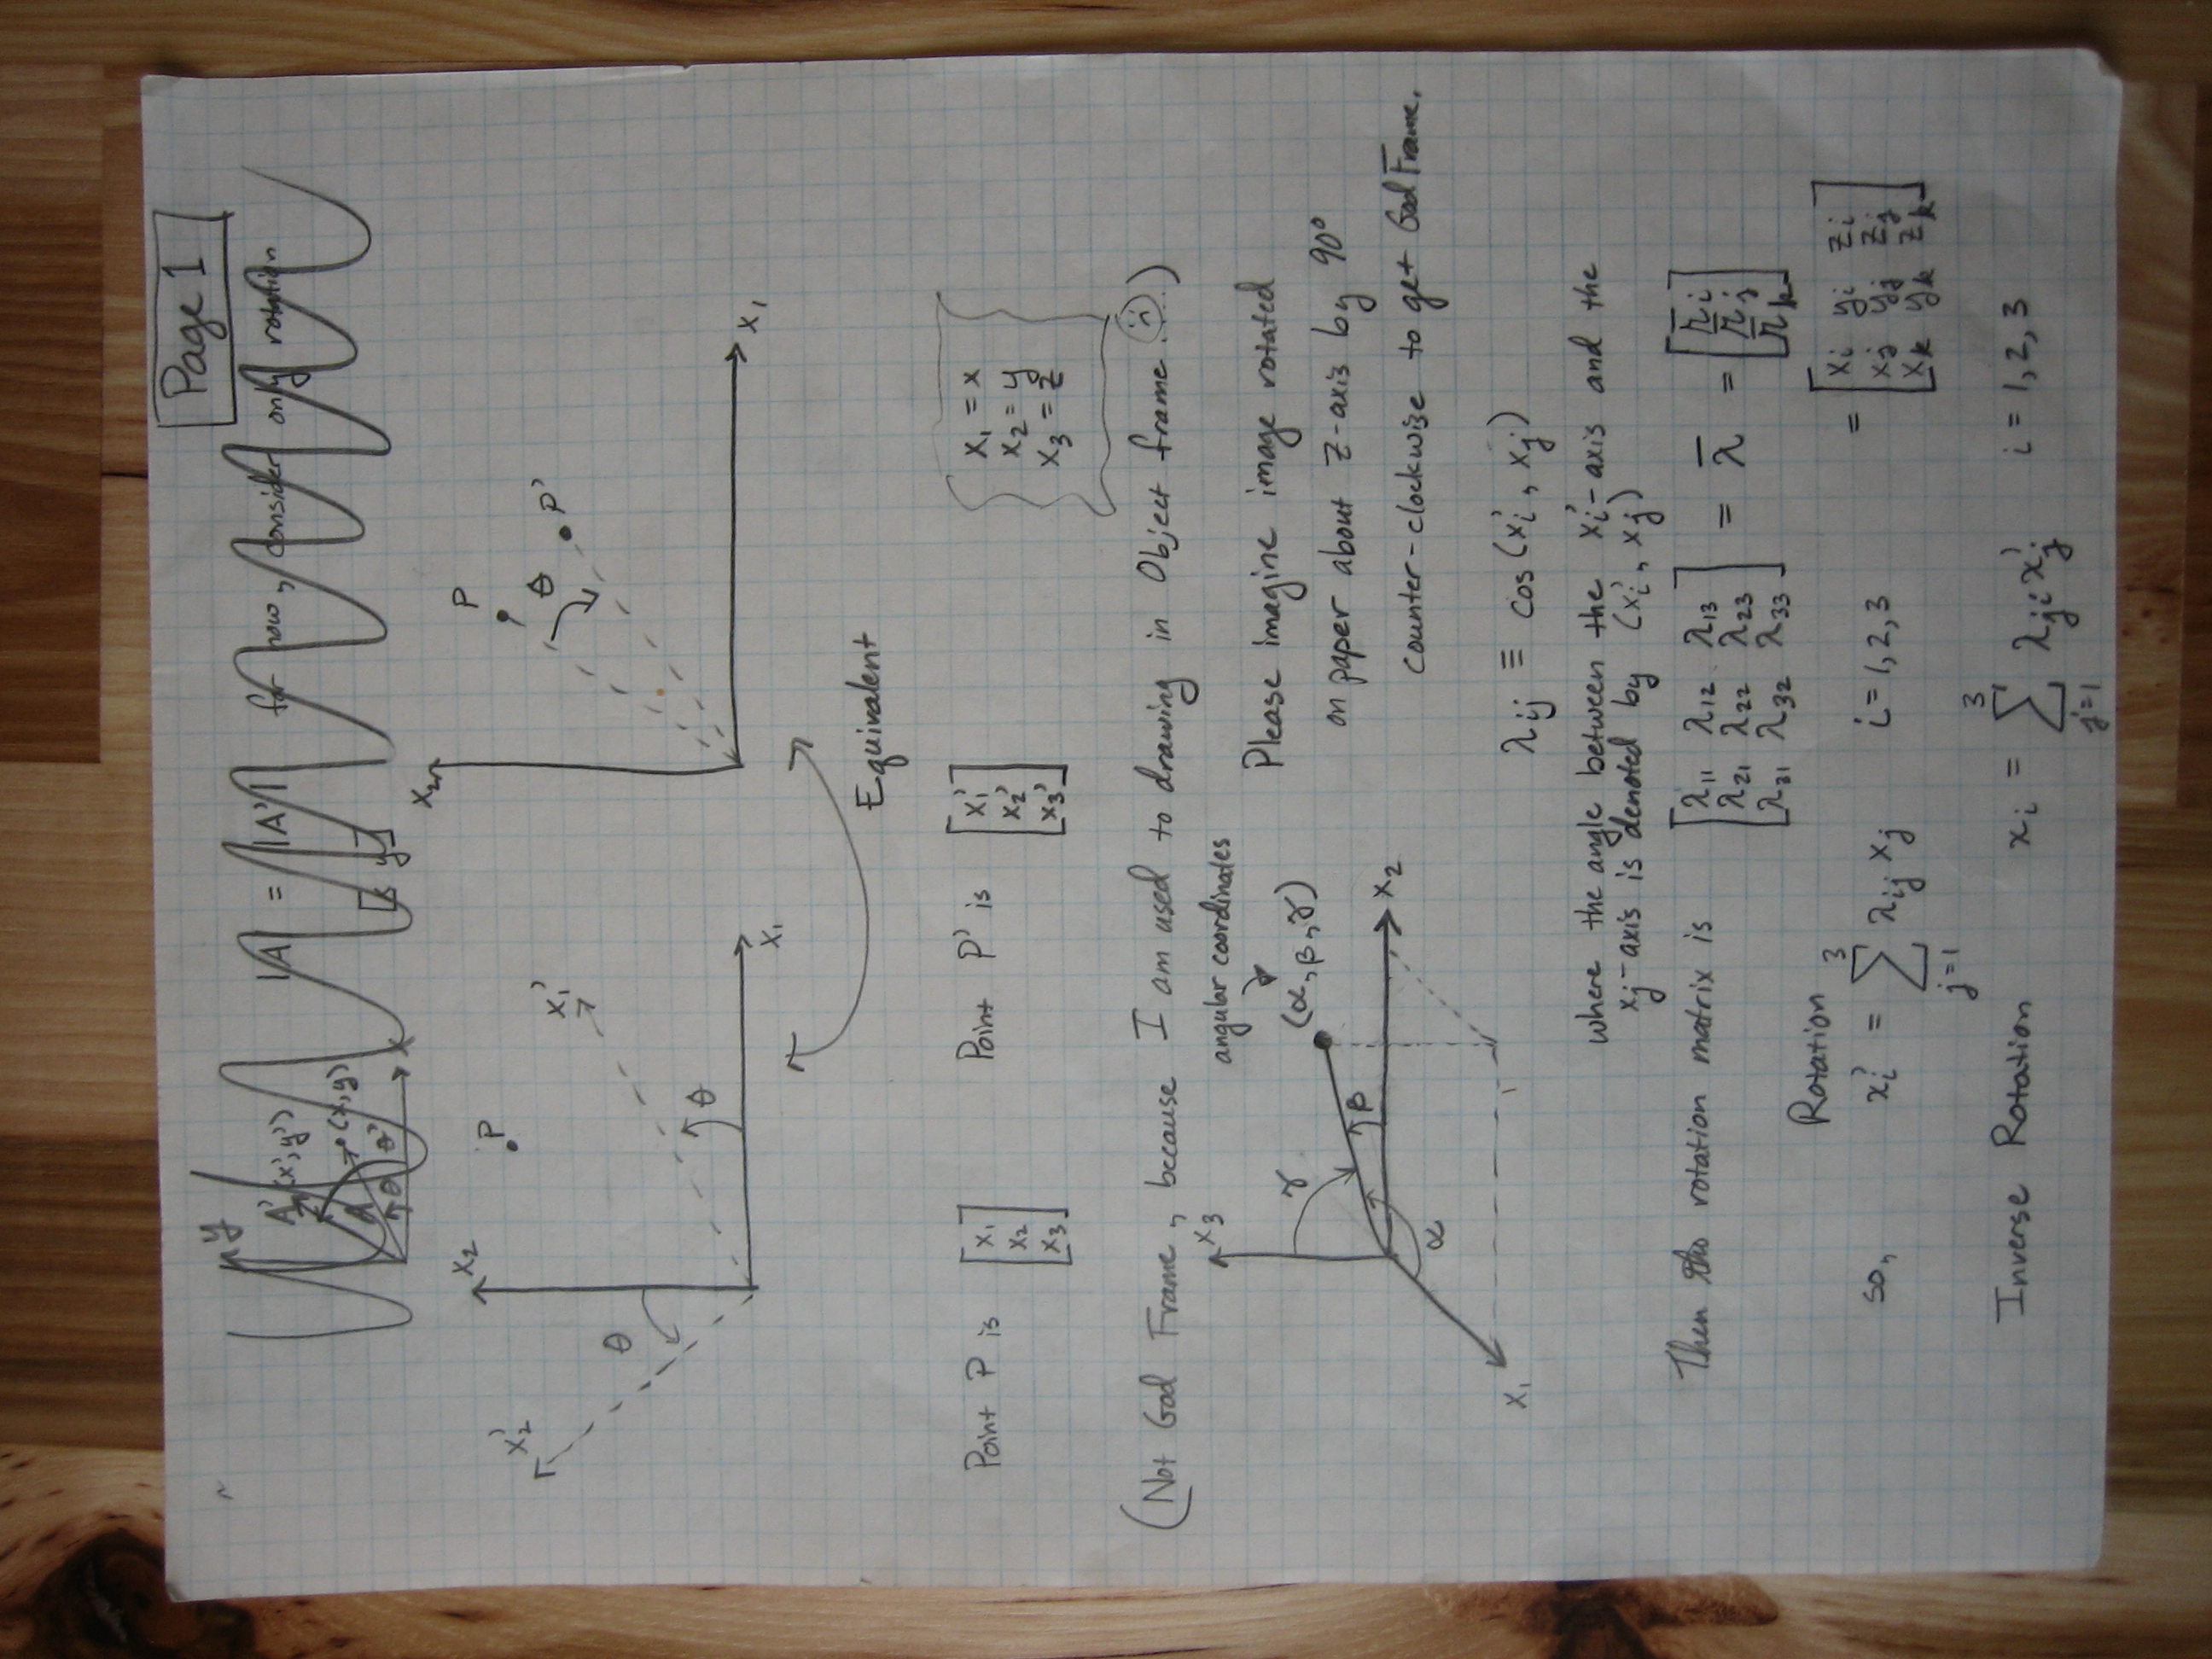 Page 1
|A| = |A'| for now, consider only rotation
y
A' (x', y')
A (x, y)
θ' θ
x
[x y]
x₂
x₂
x₂'
x₁'
P
P
P'
θ
θ
θ
x₁
x₁
Equivalent
Point P is [x₁ x₂ x₃]
Point P' is [x₁' x₂' x₃']
x₁ = x
x₂ = y
x₃ = z
(Not God Frame, because I am used to drawing in Object frame...)
angular coordinates
(α, β, γ)
x₃
γ
β
α
x₂
x₁
Please imagine image rotated
on paper about z-axis by 90°
counter-clockwise to get God Frame.
λij ≡ cos(xi', xj)
where the angle between the xi'-axis and the
xj-axis is denoted by (xi', xj)
Then the rotation matrix is
[λ₁₁ λ₁₂ λ₁₃
λ₂₁ λ₂₂ λ₂₃
λ₃₁ λ₃₂ λ₃₃] = λ̄ =
= [xi yi zi
xj yj zj
xk yk zk]
Rotation
so, xi' = ∑ j=1 3 λij xj i = 1, 2, 3
Inverse Rotation xi = ∑ j=1 3 λji xj' i = 1, 2, 3